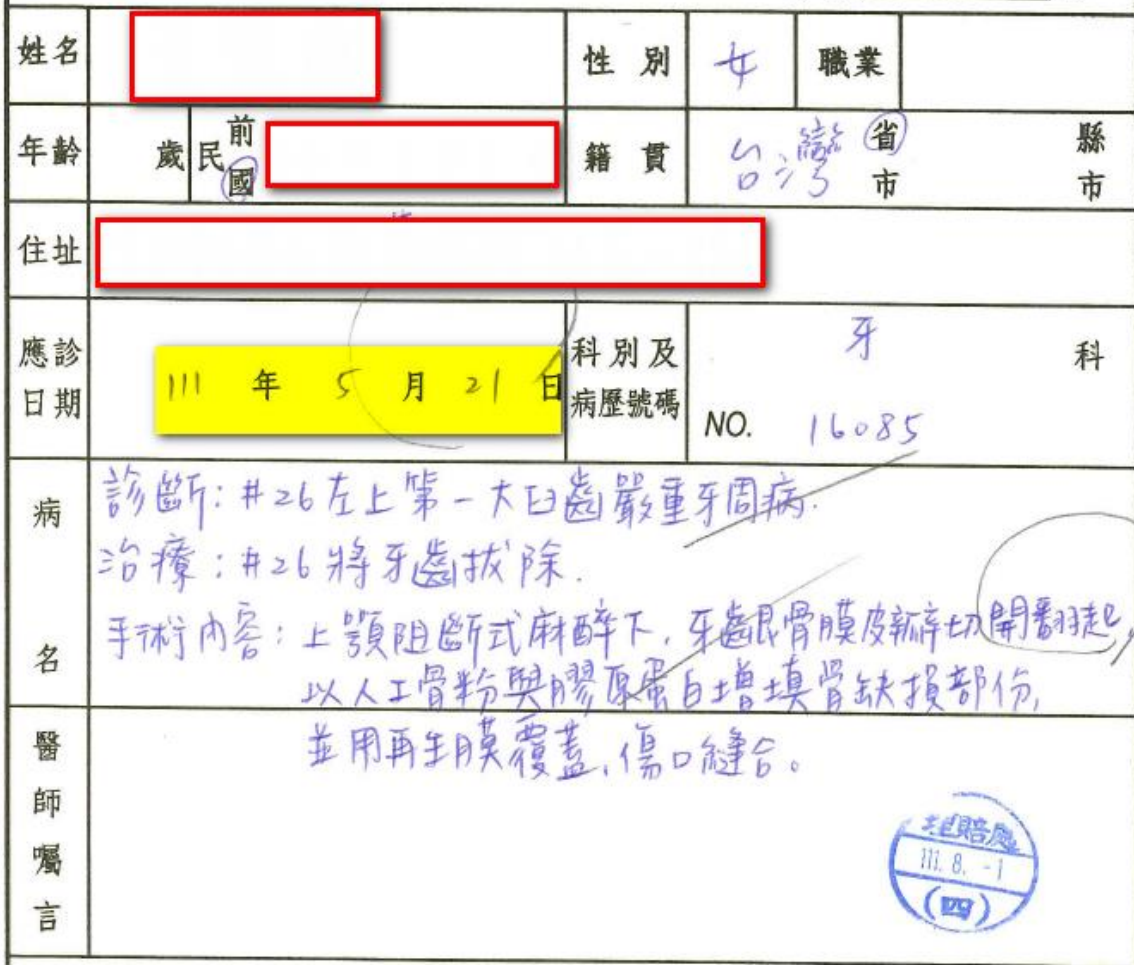 姓名 性別 女 職業
年齡 歲 民 前 國 籍貫 台灣 省 市 縣 市
住址
應診日期 111 年 5 月 21 日 科別及病歷號碼 牙 科
NO. 16085
病名
診斷：#26左上第一大臼齒嚴重牙周病.
治療：#26將牙齒拔除.
手術內容：上顎阻斷式麻醉下，牙齦骨膜皮瓣切開翻起，
以人工骨粉與膠原蛋白增填骨缺損部份，
並用再生膜覆蓋，傷口縫合。
醫師囑言
理賠處
111. 8. -1
(四)